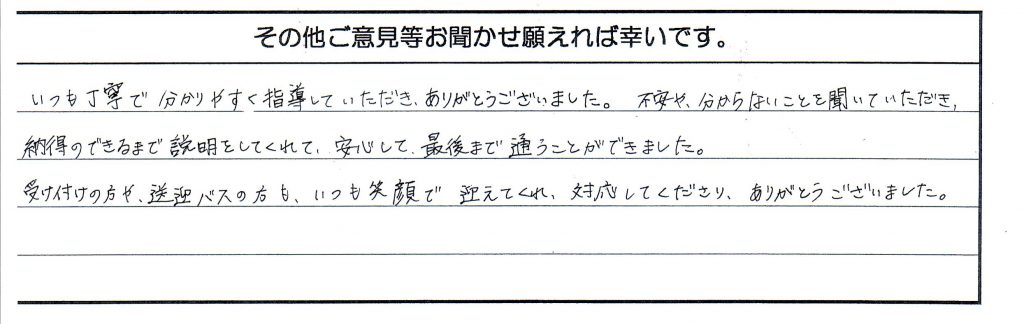 その他ご意見等お聞かせ願えれば幸いです。
いつも丁寧で分かりやすく指導していただき、ありがとうございました。 不安や、分からないことを聞いていただき、
納得のできるまで説明をしてくれて、安心して、最後まで通うことができました。
受け付けの方や、送迎バスの方も、いつも笑顔で迎えてくれ、対応してくださり、ありがとうございました。